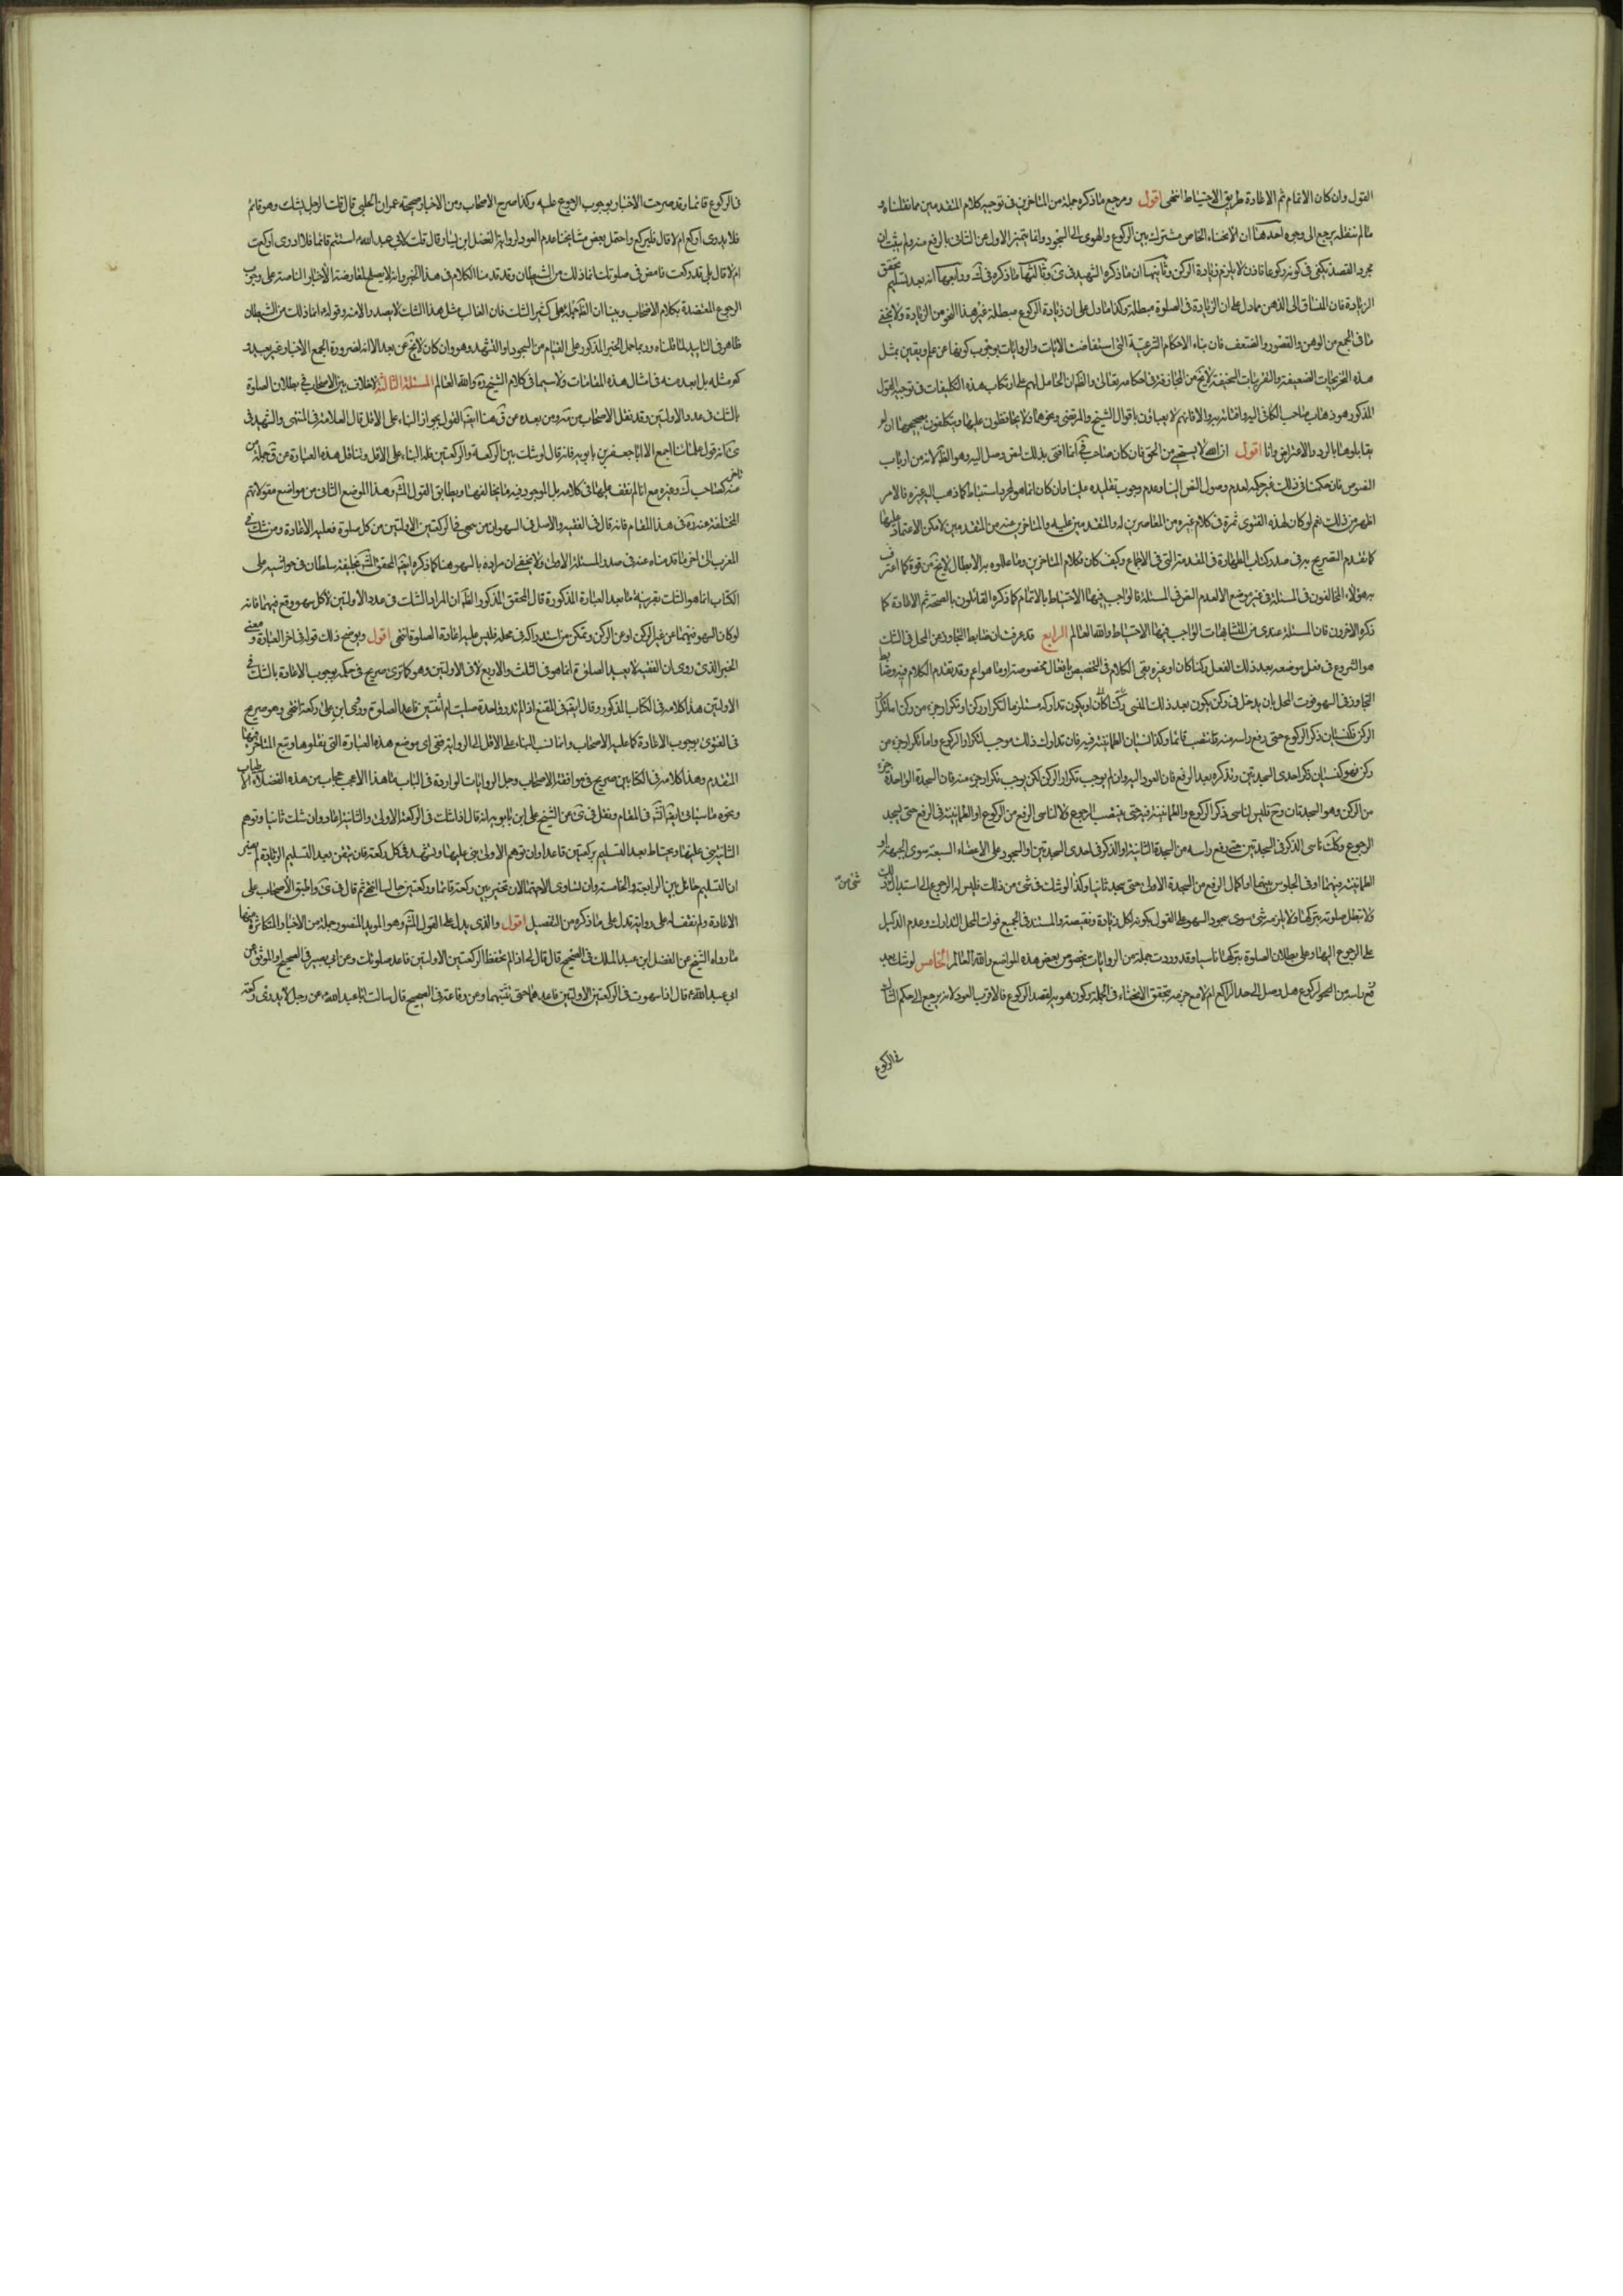 القول وان كان الاتمام ثم الاعادة طريق الاحتياط انتهى اقول ومرجع ما ذكره جملة من المتاخرين في توجيه كلام المتقدمين مما نقلناه و
ما لم ننقله يرجع الى وجوه احدها ان الانحناء الخاص مشترك بين الركوع والهوى الى السجود وانما يتميز الاول عن الثاني بالرفع منه ولم يثبت ان
مجرد القصد يكفي في كونه ركوعا فاذن لا يلزم زيادة الركن وثانيها ان ما ذكره الشهيد في وثالثها ما ذكره في ك ورابعها انه بعد تسليم تحقق
الزيادة فان المنساق الى الذهن مما دل على ان الزيادة في الصلوة مبطلة وكذا ما دل على ان زيادة الركوع مبطلة غير هذا النحو من الزيادة ولا يخفى
ما في الجمع من الوهن والقصور والضعف فان بناء الاحكام الشرعية التي استفاضت الايات والروايات بوجوب كونها عن علم ويقين بمثل
هذه التخريجات الضعيفة والتقريبات السخيفة لا يخ من المجازفة في احكامه تعالى والظ ان الحامل لهم على ارتكاب هذه التكليفات في توجيه القول
المذكور هو ذهاب صاحب الكافي اليه وافتائه به والا فانهم لا يعباؤن باقوال الشيخ والمرتضى ونحوهما ولا يحافظون عليها ويتكلفون تصحيحها ان لم
يقابلوها بالرد والاعتراض وانا اقول ان الله لا يستحيي من الحق فان كان صاحب في انما افتى بذلك لنص وصل اليه وهو الظ لانه من ارباب
النصوص فان حكمنا في ذلك غير حكمه لعدم وصول النص الينا وعدم وجوب تقليده علينا وان كان انما هو لمجرد استنباط كما ذهب اليه غيره فالامر
اظهر من ذلك نعم لو كان لهذه الفتوى شهرة في كلام غيره من المعاصرين له والمتقدمين عليه والمتاخرين عنه من المتقدمين لامكن الاعتماد عليها
كما تقدم التصريح به في صدر كتاب الطهارة في المقدمة التي في الاجماع وكيف كان فكلام المتاخرين وما عللوه به الابطال لا يخ من قوة كما اعترف
به هؤلاء المخالفون في المسئلة في غير موضع الا لعدم النص في المسئلة فالواجب فيها الاحتياط بالاتمام كما ذكره القائلون بالصحة ثم الاعادة كما
ذكره الاخرون فان المسئلة عندي من المتشابهات الواجب فيها الاحتياط والله العالم الرابع قد عرفت ان ضابط التجاوز عن المحل في الشك
هو الشروع في فعل موضعه بعد ذلك الفعل ركنا كان او غيره بقى الكلام في التخصيص بافعال مخصوصة او ما هو اعم وقد تقدم الكلام فيه وضابط
التجاوز في السهو فوت المحل بان يدخل في ركن يكون بعد ذلك المنسي ركنا كان او يكون تداركه مستلزما لتكرار ركن او تكرار جزء من ركن اما تكرار
الركن فكنسيان ذكر الركوع حتى رفع راسه منه فانتصب قائما وكذا نسيان الطمانينة فيه فان تدارك ذلك موجب لتكرار الركوع واما تكرار جزء من
ركن فهو كنسيان ذكر احدى السجدتين وتذكره بعد الرفع فان العود اليه وان لم يوجب تكرار الركن لكن يوجب تكرار جزء منه فان السجدة الواحدة جزء
من الركن وهو السجدتان وح فليس لناسي ذكر الركوع والطمانينة فيه حتى ينتصب الرجوع ولا لناسي الرفع من الركوع او الطمانينة في الرفع حتى يسجد
الرجوع وكذلك ناسي الذكر في السجدتين حتى يرفع راسه من السجدة الثانية او الذكر في احدى السجدتين او السجود على الاعضاء السبعة سوى الجبهة او
الطمانينة فيهما او في الجلوس بينهما او اكمال الرفع من السجدة الاولى حتى سجد ثانيا وكذا لو شك في شئ من ذلك فليس له الرجوع الى استدراك ذلك
شئ من
ولا تبطل صلوته بتركها ولا يلزمه شئ سوى سجود السهو على القول بكونه لكل زيادة ونقيصة والمستند في الجميع فوات المحل التدارك وعدم الدليل
على الرجوع اليها وعلى بطلان الصلوة بتركها ناسيا وقد وردت جملة من الروايات بخصوص بعض هذه المواضع والله العالم الخامس لو شك بعد
رفع راسه من الركوع هل وصل الى حد الراكع ام لا مع جزمه بتحقق الانحناء في الجملة وكون هويه لقصد الركوع فالاقرب العود لانه يرجع الى حكم الشاك
في الركوع
في الركوع قائما وقد صرحت الاخبار بوجوب الرجوع عليه وكذا صرح الاصحاب ومن الاخبار صحيحة عمران الحلبي قال قلت الرجل يشك وهو قائم
فلا يدري اركع ام لا قال فليركع واحتمل بعض مشايخنا عدم العود لرواية الفضل ابن يسار قال قلت لابي عبد الله استتم قائما فلا ادري اركعت
ام لا قال بلى قد ركعت فامض في صلوتك انما ذلك من الشيطان وقد قدمنا الكلام في هذا الخبر وانه لا يصلح لمعارضة الاخبار الناصة على وجوب
الرجوع المعتضدة بكلام الاصحاب وبينا ان الظ حمله على كثير الشك فان الغالب مثل هذا الشك لا يصدر الا منه وقوله انما ذلك من الشيطان
ظاهر في التاييد لما قلناه وربما حمل الخبر المذكور على القيام من السجود او التشهد وهو وان كان لا يخ عن بعد الا انه لضرورة الجمع الاخبار غير بعيد و
كم مثله بل ابعد منه في امثال هذه المقامات ولا سيما في كلام الشيخ ره والله العالم المسئلة الثالثة لا خلاف بين الاصحاب في بطلان الصلوة
بالشك في عدد الاولتين وقد نقل الاصحاب من ومن بعده عن ق هنا ايضا القول بجواز البناء على الاقل قال العلامة في المنتهى والشهيد في
انه قول علمائنا اجمع الا ابا جعفر بن بابويه فانه قال لو شك بين الركعة والركعتين فله البناء على الاقل وتناقل هذه العبارة عن ق جملة من تاخر
عنه كصاحب ك وغيره مع انا لم نقف عليها في كلامه بل الموجود فيه ما يخالفها ويطابق القول المش وهذا الموضع الثاني من مواضع مقولاتهم
المختلفة عنه ره في هذا المقام فانه قال في الفقيه والاصل في السهو ان من سهى في الركعتين الاولتين من كل صلوة فعليه الاعادة ومن شك في
المغرب الى اخر ما قدمناه عنه في صدر المسئلة الاولى ولا يخفى ان مراده بالسهو هنا كما ذكره ايضا المحقق الشهير بخليفة سلطان في حواشيه على
الكتاب انما هو الشك بقرينة ما بعد العبارة المذكورة قال المحقق المذكور الظ ان المراد الشك في عدد الاولتين لا كل سهو وقع فيهما فانه
لو كان السهو فيهما عن غير الركن او عن الركن وتمكن من استدراكه في محله فليس عليه اعادة الصلوة انتهى اقول ويوضح ذلك قوله في اخر العبارة ومعنى
الخبر الذي روى ان الفقيه لا يعيد الصلوة انما هو في الثلث والاربع لا في الاولتين وهو كما ترى صريح في حكمه بوجوب الاعادة بالشك في
الاولتين هذا كلامه في الكتاب المذكور وقال ايضا في المقنع اذا لم تدر واحدة صليت ام اثنتين فاعد الصلوة وروى ابن على ركعة انتهى وهو صريح
في الفتوى بوجوب الاعادة كما عليه الاصحاب وانما نسب البناء على الاقل الى الرواية ففي اي موضع هذه العبارة التي نقلوها وتبع المتاخر فيها
المتقدم وهذا كلامه في الكتابين صريح في موافقة الاصحاب وجل الروايات الواردة في الباب ما هذا الا عجب عجاب من هذه الفضلاء الاطياب
ونحوه ما سياتي ايضا انشاء الله في المقام ونقل في عن الشيخ على ابن بابويه انه قال اذا شك في الركعة الاولى والثانية اعاد وان شك ثانيا وتوهم
الثانية بنى عليها ويحتاط بعد التسليم بركعتين قاعدا وان توهم الاولى بنى عليها وتشهد في كل ركعة فان تيقن بعد التسليم الزيادة لم يضر
ان التسليم حائل بين الرابعة والخامسة وان تساوى الاحتمالان تخير بين ركعة قائما وركعتين جالسا انتهى ثم قال في واطبق الاصحاب على
الاعادة ولم نقف له على رواية تدل على ما ذكره من التفصيل اقول والذي يدل على القول المش وهو المؤيد المنصور جملة من الاخبار المتكاثرة منها
ما رواه الشيخ عن الفضل ابن عبد الملك في الصحيح قال قال لي اذا لم تحفظ الركعتين الاولتين فاعد صلوتك وعن ابي بصير في الصحيح او الموثق عن
ابي عبد الله قال اذا سهوت في الركعتين الاولتين فاعدهما حتى تثبتهما وعن رفاعة في الصحيح قال سالت ابا عبد الله عن رجل لا يدري اركعة